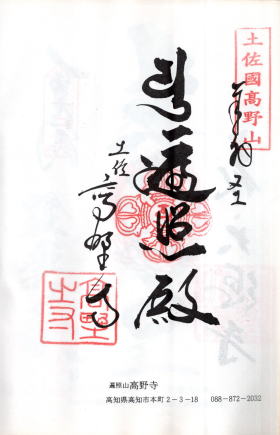 土佐國高野山
遍照殿
土佐
高野寺
高野寺
高野寺
高知県高知市本町2-3-18 088-872-2032